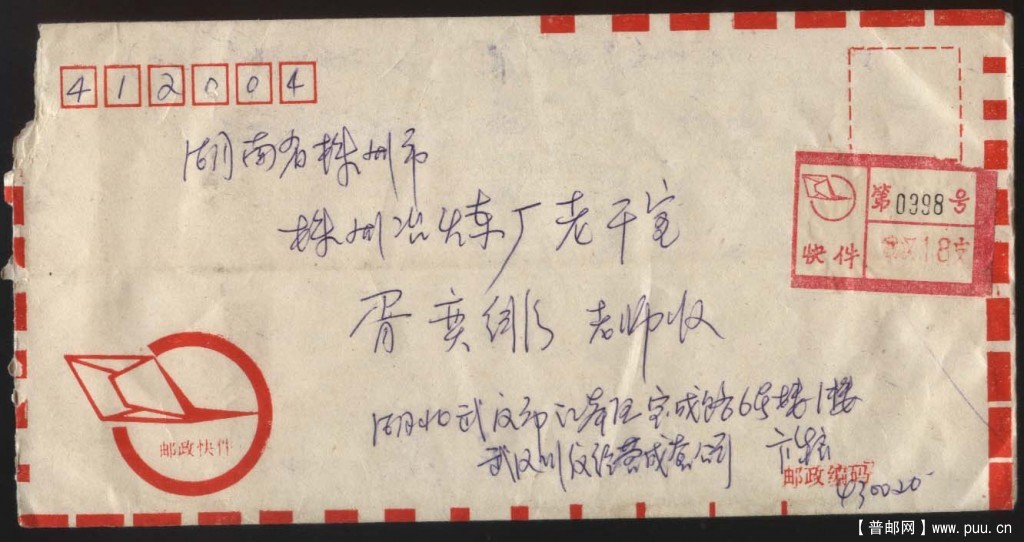 412004
湖南省株洲市
株洲冶炼厂老干室
胥奕 老师收
第0398号
快件
18支
邮政快件
湖北武汉市江岸区宝成路6号楼1楼
武汉川汉
邮政编码
430020
【普邮网】www.puu.cn